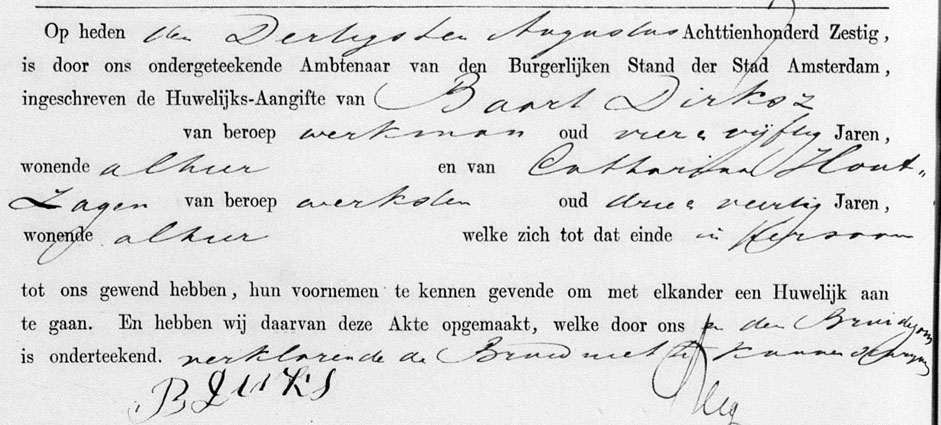 Op heden den Dertigsten Augustus Achttienhonderd Zestig,
is door ons ondergeteekende Ambtenaar van den Burgerlijken Stand der Stad Amsterdam,
ingeschreven de Huwelijks-Aangifte van Baart Dirksz
van beroep werkman oud vier & vijftig Jaren,
wonende alhier en van Catharina Hout-
zagen van beroep werkster oud drie & veertig Jaren,
wonende alhier welke zich tot dat einde in Persoon
tot ons gewend hebben, hun voornemen te kennen gevende om met elkander een Huwelijk aan
te gaan. En hebben wij daarvan deze Akte opgemaakt, welke door ons en den Bruidegom
is onderteekend. verklarende de Bruid niet te kunnen schrijven
B Dirks